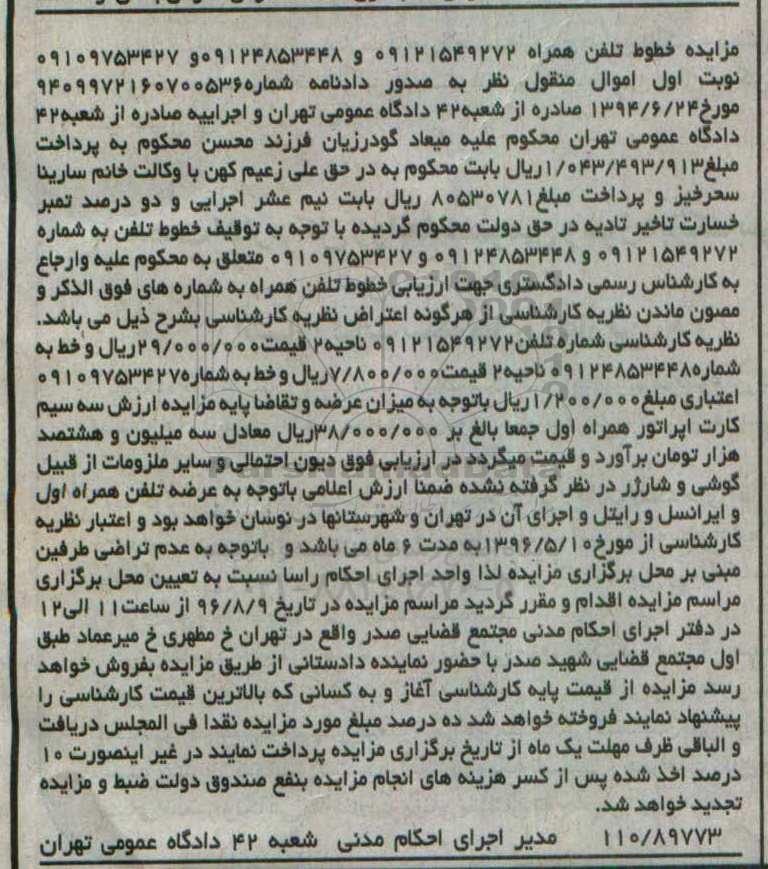 مزایده خطوط تلفن همراه ۰۹۱۲۱۵۴۹۲۷۲ و ۰۹۱۲۴۸۵۳۴۴۸و ۰۹۱۰۹۷۵۳۴۲۷
نوبت اول اموال منقول نظر به صدور دادنامه شماره۹۴۰۹۹۷۲۱۶۰۷۰۰۵۳۶
مورخ۱۳۹۴/۶/۲۴ صادره از شعبه۴۲ دادگاه عمومی تهران و اجراییه صادره از شعبه۴۲
دادگاه عمومی تهران محکوم علیه میعاد گودرزیان فرزند محسن محکوم به پرداخت
مبلغ۱/۰۴۳/۴۹۳/۹۱۳ریال بابت محکوم به در حق علی زعیم کهن با وکالت خانم سارینا
سحرخیز و پرداخت مبلغ۸۰۵۳۰۷۸۱ ریال بابت نیم عشر اجرایی و دو درصد تمبر
خسارت تاخیر تادیه در حق دولت محکوم گردیده با توجه به توقیف خطوط تلفن به شماره
۰۹۱۲۱۵۴۹۲۷۲ و ۰۹۱۲۴۸۵۳۴۴۸ و ۰۹۱۰۹۷۵۳۴۲۷ متعلق به محکوم علیه وارجاع
به کارشناس رسمی دادگستری جهت ارزیابی خطوط تلفن همراه به شماره های فوق الذکر و
مصون ماندن نظریه کارشناسی از هرگونه اعتراض نظریه کارشناسی بشرح ذیل می باشد.
نظریه کارشناسی شماره تلفن۰۹۱۲۱۵۴۹۲۷۲ ناحیه۲ قیمت۲۹/۰۰۰/۰۰۰ریال و خط به
شماره۰۹۱۲۴۸۵۳۴۴۸ ناحیه۲ قیمت۷/۸۰۰/۰۰۰ریال و خط به شماره۰۹۱۰۹۷۵۳۴۲۷
اعتباری مبلغ۱/۲۰۰/۰۰۰ریال باتوجه به میزان عرضه و تقاضا پایه مزایده ارزش سه سیم
کارت اپراتور همراه اول جمعا بالغ بر ۳۸/۰۰۰/۰۰۰ریال معادل سه میلیون و هشتصد
هزار تومان برآورد و قیمت میگردد در ارزیابی فوق دیون احتمالی و سایر ملزومات از قبیل
گوشی و شارژر در نظر گرفته نشده ضمنا ارزش اعلامی باتوجه به عرضه تلفن همراه اول
و ایرانسل و رایتل و اجرای آن در تهران و شهرستانها در نوسان خواهد بود و اعتبار نظریه
کارشناسی از مورخ۱۳۹۶/۵/۱۰به مدت ۶ ماه می باشد و باتوجه به عدم تراضی طرفین
مبنی بر محل برگزاری مزایده لذا واحد اجرای احکام راسا نسبت به تعیین محل برگزاری
مراسم مزایده اقدام و مقرر گردید مراسم مزایده در تاریخ ۹۶/۸/۹ از ساعت۱۱ الی۱۲
در دفتر اجرای احکام مدنی مجتمع قضایی صدر واقع در تهران خ مطهری خ میرعماد طبق
اول مجتمع قضایی شهید صدر با حضور نماینده دادستانی از طریق مزایده بفروش خواهد
رسد مزایده از قیمت پایه کارشناسی آغاز و به کسانی که بالاترین قیمت کارشناسی را
پیشنهاد نمایند فروخته خواهد شد ده درصد مبلغ مورد مزایده نقدا فی المجلس دریافت
و الباقی ظرف مهلت یک ماه از تاریخ برگزاری مزایده پرداخت نمایند در غیر اینصورت ۱۰
درصد اخذ شده پس از کسر هزینه های انجام مزایده بنفع صندوق دولت ضبط و مزایده
تجدید خواهد شد.
۱۱۰/۸۹۷۷۳ مدیر اجرای احکام مدنی شعبه ۴۲ دادگاه عمومی تهران